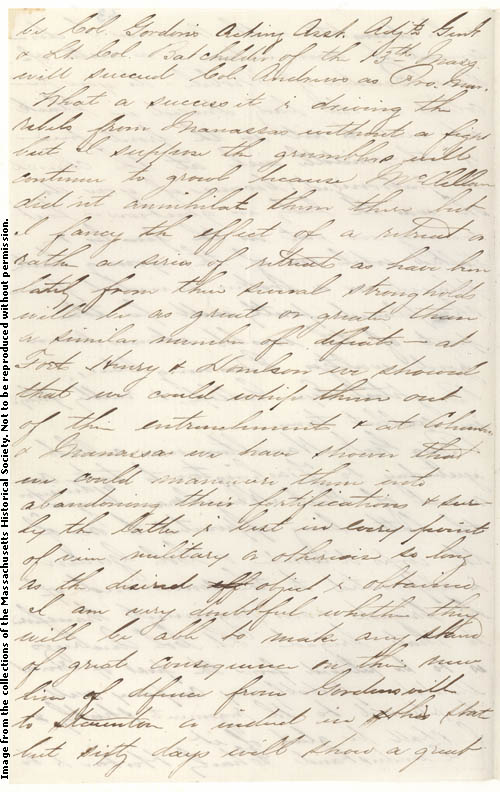 be Col. Gordon's Acting Asst. Adjt. Genl.
& Lt. Col. Batchelder of the 13th Mass
will succeed Col. Andrews as Pro. Mar.
What a success it is driving the
rebels from Manassas without a fight
but I suppose the grumblers will
continue to growl because McClellan
did nt annihilate them there but
I fancy the effect of a retreat or
rather a series of retreats as have been
lately from their several strongholds
will be as great or greater than
a similar number of defeats — at
Fort Henry & Donelson we showed
that we could whip them out
of their entrenchments & at Columbus
& Manassas we have shown that
we could maneuver them into
abandoning their fortifications & sure-
ly the latter is best in every point
of view military or otherwise so long
as the desired object is obtained
I am very doubtful whether they
will be able to make any stand
of great consequence on their new
line of defence from Gordonsville
to Staunton or indeed in this state
but sixty days will show a great
Image from the collections of the Massachusetts Historical Society. Not to be reproduced without permission.